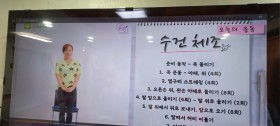 오늘의 운동
수건 체조
준비 동작 - 목 돌리기
1. 목 운동 - 아래, 위 (4회)
2. 옆구리 스트레칭 (4회)
3. 오른손 위, 왼손 아래로 돌리기 (4회)
4. 팔 앞으로 올리기 (4회) - 팔 위로 올리기 (2회)
5. 팔 뒤에서 위로 보내기, 앞으로 오기 (8회)
6. 앉아서 허리 비틀기